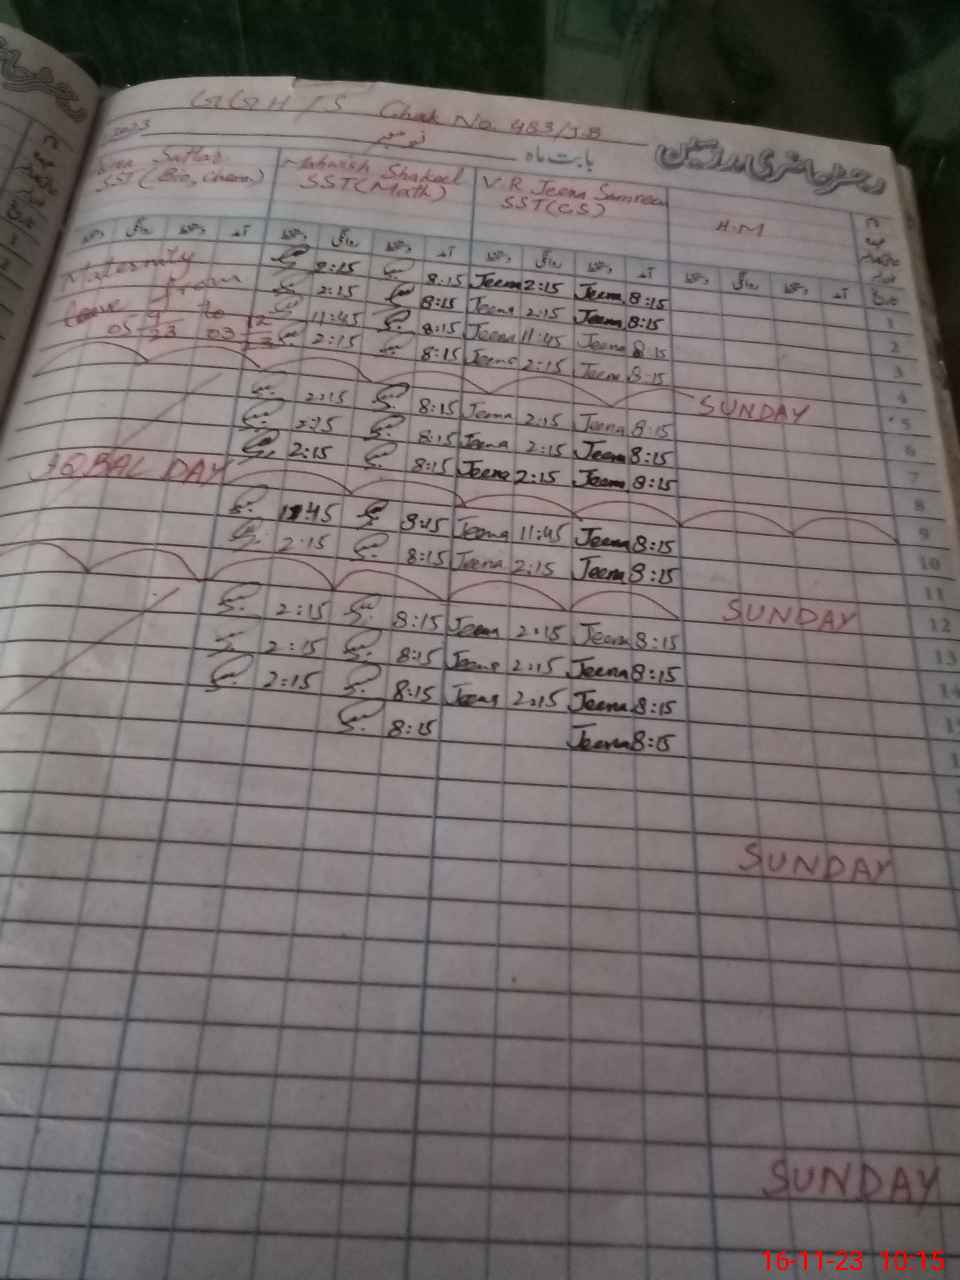 GGH/S Chak No. 483/JB
2023 نومبر بابت ماہ رجسٹر حاضری مدرسین
Sattar Mahwish Shakeel V.R Jeena Samreen
SST (Bio, Chem) SST (Math) SST (CS) H.M
دستخط روانگی دستخط آمد دستخط روانگی دستخط آمد دستخط روانگی دستخط آمد دستخط روانگی دستخط آمد
Maternity 2:15 8:15 Jeena 2:15 Jeena 8:15 1
leave from 2:15 8:15 Jeena 2:15 Jeena 8:15 2
05 9 23 to 03 12 23 11:45 8:15 Jeena 11:45 Jeena 8:15 3
2:15 8:15 Jeena 2:15 Jeena 8:15 4
SUNDAY 5
2:15 8:15 Jeena 2:15 Jeena 8:15 6
2:15 8:15 Jeena 2:15 Jeena 8:15 7
2:15 8:15 Jeena 2:15 Jeena 8:15 8
IQBAL DAY 9
11:45 8:15 Jeena 11:45 Jeena 8:15 10
2:15 8:15 Jeena 2:15 Jeena 8:15 11
SUNDAY 12
2:15 8:15 Jeena 2:15 Jeena 8:15 13
2:15 8:15 Jeena 2:15 Jeena 8:15 14
2:15 8:15 Jeena 2:15 Jeena 8:15
8:15 Jeena 8:15
SUNDAY
SUNDAY
16-11-23 10:15